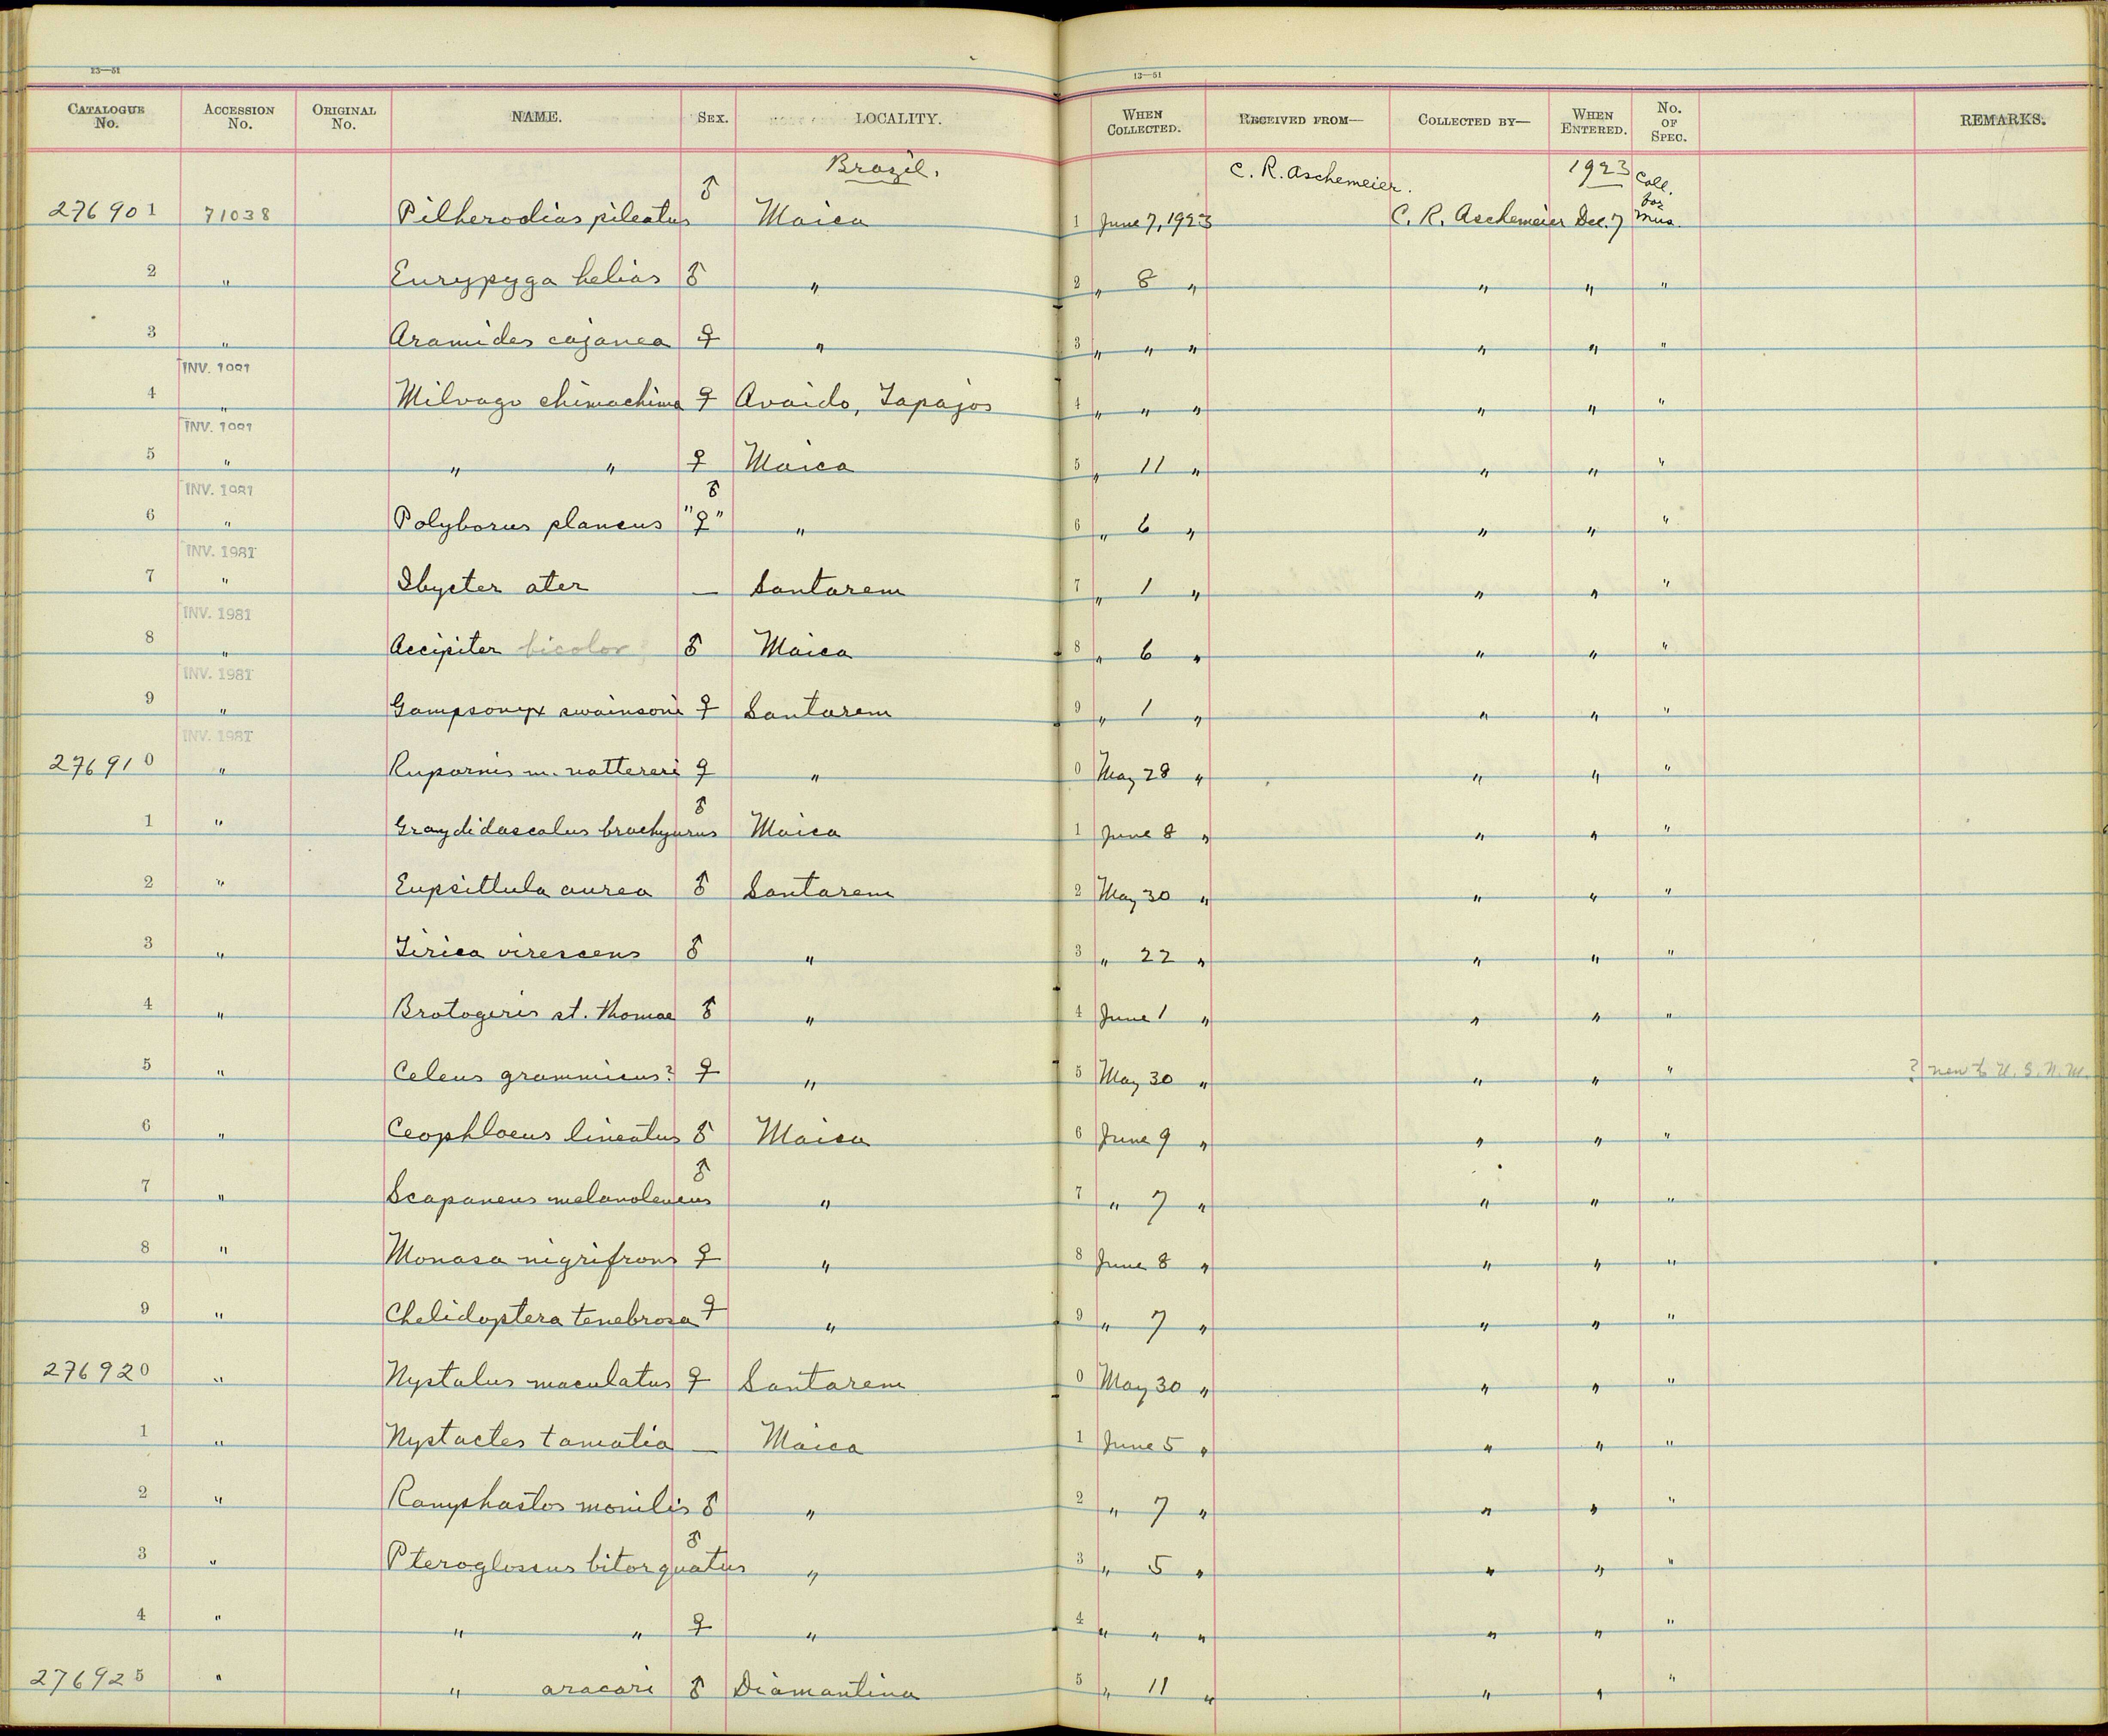 13—51 13—51
CATALOGUE No. ACCESSION No. ORIGINAL No. NAME. SEX. LOCALITY. WHEN COLLECTED. RECEIVED FROM— COLLECTED BY— WHEN ENTERED. No. OF SPEC. REMARKS.
Brazil. C. R. Aschemeier. 1923 Coll. for
276901 71038 Pilherodias pileatus ♂ Maica 1 June 7, 1923 C. R. Aschemeier Dec. 7 Mus.
2 " Eurypyga helias ♂ " 2 " 8 " " " "
3 " Aramides cajanea ♀ " 3 " " " " " "
INV. 1981
4 " Milvago chimachima ♀ Avaido, Tapajos 4 " " " " " "
INV. 1981
5 " " " ♀ Maica 5 " 11 " " " "
INV. 1981 ♂
6 " Polyborus plancus "♀" " 6 " 6 " " " "
INV. 1981
7 " Ibycter ater — Santarem 7 " 1 " " " "
INV. 1981
8 " Accipiter bicolor ♂ Maica 8 " 6 " " " "
INV. 1981
9 " Gampsonyx swainsoni ♀ Santarem 9 " 1 " " " "
INV. 1981
276910 " Rupornis m. nattereri ♀ " 0 May 28 " " " "
1 " Graydidascalus brachyurus ♂ Maica 1 June 8 " " " "
2 " Eupsittula aurea ♂ Santarem 2 May 30 " " " "
3 " Tirica virescens ♂ " 3 " 22 " " " "
4 " Brotogeris st. thomae ♂ " 4 June 1 " " " "
5 " Celeus grammicus? ♀ " 5 May 30 " " " " ? new to U. S. N. M.
6 " Ceophloeus lineatus ♂ Maica 6 June 9 " " " "
7 " Scapaneus melanoleucus ♂ " 7 " 7 " " " "
8 " Monasa nigrifrons ♀ " 8 June 8 " " " "
9 " Chelidoptera tenebrosa ♀ " 9 " 7 " " " "
276920 " Nystalus maculatus ♀ Santarem 0 May 30 " " " "
1 " Nystactes tamatia — Maica 1 June 5 " " " "
2 " Ramphastos monilis ♂ " 2 " 7 " " " "
3 " Pteroglossus bitorquatus ♂ " 3 " 5 " " " "
4 " " " ♀ " 4 " " " " " "
276925 " " aracari ♂ Diamantina 5 " 11 " " " "